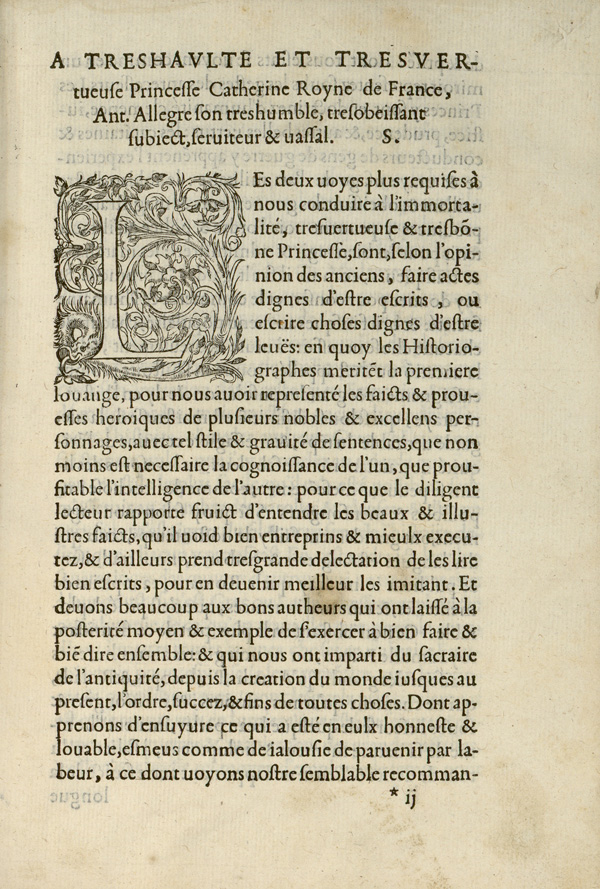 A TRESHAVLTE ET TRESVER-
tueuse Princesse Catherine Royne de France,
Ant. Allegre son treshumble, tresobeissant
subiect, seruiteur & uassal. S.
LEs deux uoyes plus requises à
nous conduire à l'immorta-
lité, tresuertueuse & tresbõ-
ne Princesse, sont, selon l'opi-
nion des anciens, faire actes
dignes d'estre escrits, ou
escrire choses dignes d'estre
leuës: en quoy les Historio-
graphes meritẽt la premiere
louange, pour nous auoir representé les faicts & prou-
esses heroiques de plusieurs nobles & excellens per-
sonnages, auec tel stile & grauité de sentences, que non
moins est necessaire la cognoissance de l'un, que prou-
fitable l'intelligence de l'autre: pour ce que le diligent
lecteur rapporte fruict d'entendre les beaux & illu-
stres faicts, qu'il uoid bien entreprins & mieulx execu-
tez, & d'ailleurs prend tresgrande delectation de les lire
bien escrits, pour en deuenir meilleur les imitant. Et
deuons beaucoup aux bons autheurs qui ont laissé à la
posterité moyen & exemple de s'exercer à bien faire &
biẽ dire ensemble: & qui nous ont imparti du sacraire
de l'antiquité, depuis la creation du monde iusques au
present, l'ordre, succez, & fins de toutes choses. Dont ap-
prenons d'ensuyure ce qui a esté en eulx honneste &
louable, esmeus comme de ialousie de paruenir par la-
beur, à ce dont uoyons nostre semblable recomman-
* ij